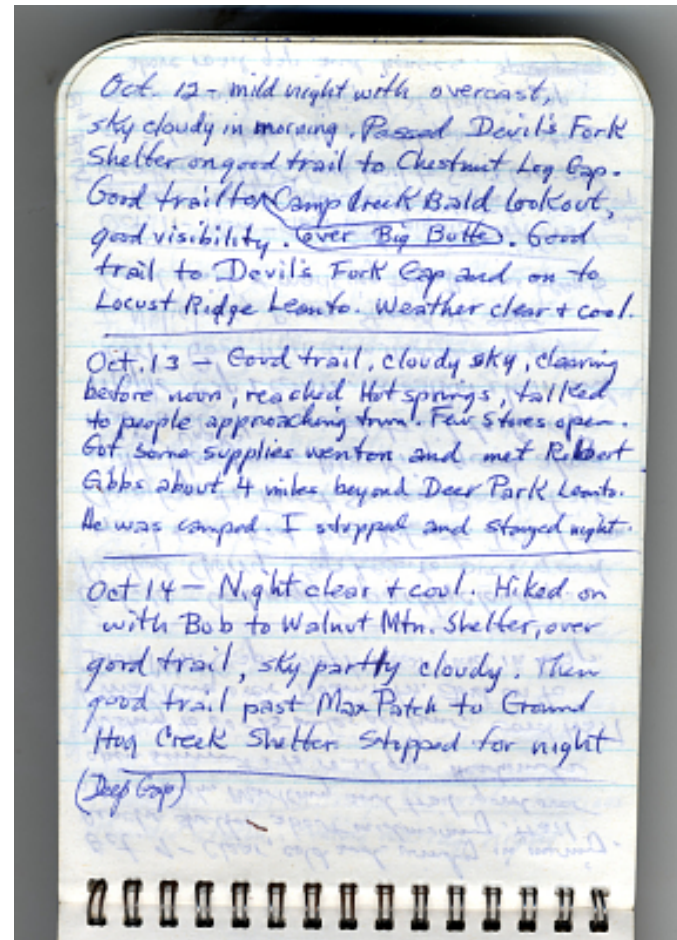 Oct. 12 - mild night with overcast,
sky cloudy in morning. Passed Devil's Fork
Shelter on good trail to Chestnut Log Gap.
Good trail to Camp Creek Bald lookout,
good visibility. over Big Butte. Good
trail to Devil's Fork Gap and on to
Locust Ridge Leanto. Weather clear + cool.
Oct. 13 - Good trail, cloudy sky, clearing
before noon, reached Hot springs, talked
to people approaching town. Few stores open.
Got some supplies went on and met Robert
Gibbs about 4 miles beyond Deer Park Leanto.
He was camped. I stopped and stayed night.
Oct 14 - Night clear + cool. Hiked on
with Bob to Walnut Mtn. Shelter, over
good trail, sky partly cloudy. Then
good trail past Max Patch to Ground
Hog Creek Shelter. Stopped for night
(Deep Gap)